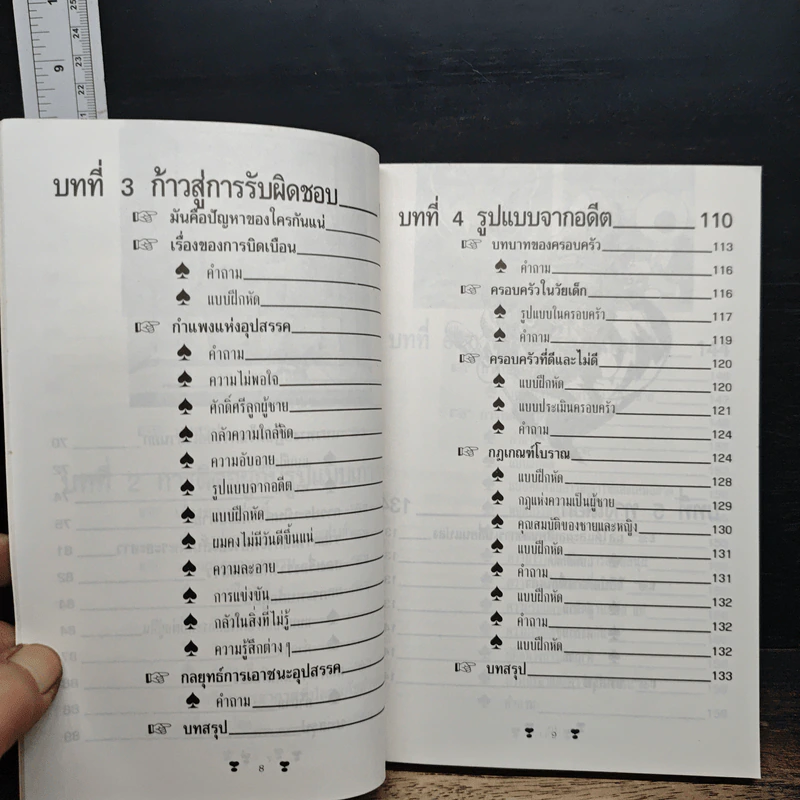 บทที่ 3 ก้าวสู่การรับผิดชอบ
มันคือปัญหาของใครกันแน่
เรื่องของการบิดเบือน
คำถาม
แบบฝึกหัด
กำแพงแห่งอุปสรรค
คำถาม
ความไม่พอใจ
ศักดิ์ศรีลูกผู้ชาย
กลัวความใกล้ชิด
ความอับอาย
รูปแบบจากอดีต
แบบฝึกหัด
ผมคงไม่มีวันดีขึ้นแน่
ความละอาย
การแข่งขัน
กลัวในสิ่งที่ไม่รู้
ความรู้สึกต่าง ๆ
กลยุทธ์การเอาชนะอุปสรรค
คำถาม
บทสรุป
8
บทที่ 4 รูปแบบจากอดีต 110
บทบาทของครอบครัว 113
คำถาม 116
ครอบครัวในวัยเด็ก 116
รูปแบบในครอบครัว 117
คำถาม 119
ครอบครัวที่ดีและไม่ดี 120
แบบฝึกหัด 120
แบบประเมินครอบครัว 121
คำถาม 124
กฎเกณฑ์โบราณ 124
แบบฝึกหัด 128
กฎแห่งความเป็นผู้ชาย 129
คุณสมบัติของชายและหญิง 130
แบบฝึกหัด 131
คำถาม 131
แบบฝึกหัด 132
คำถาม 132
แบบฝึกหัด 132
บทสรุป 133
9